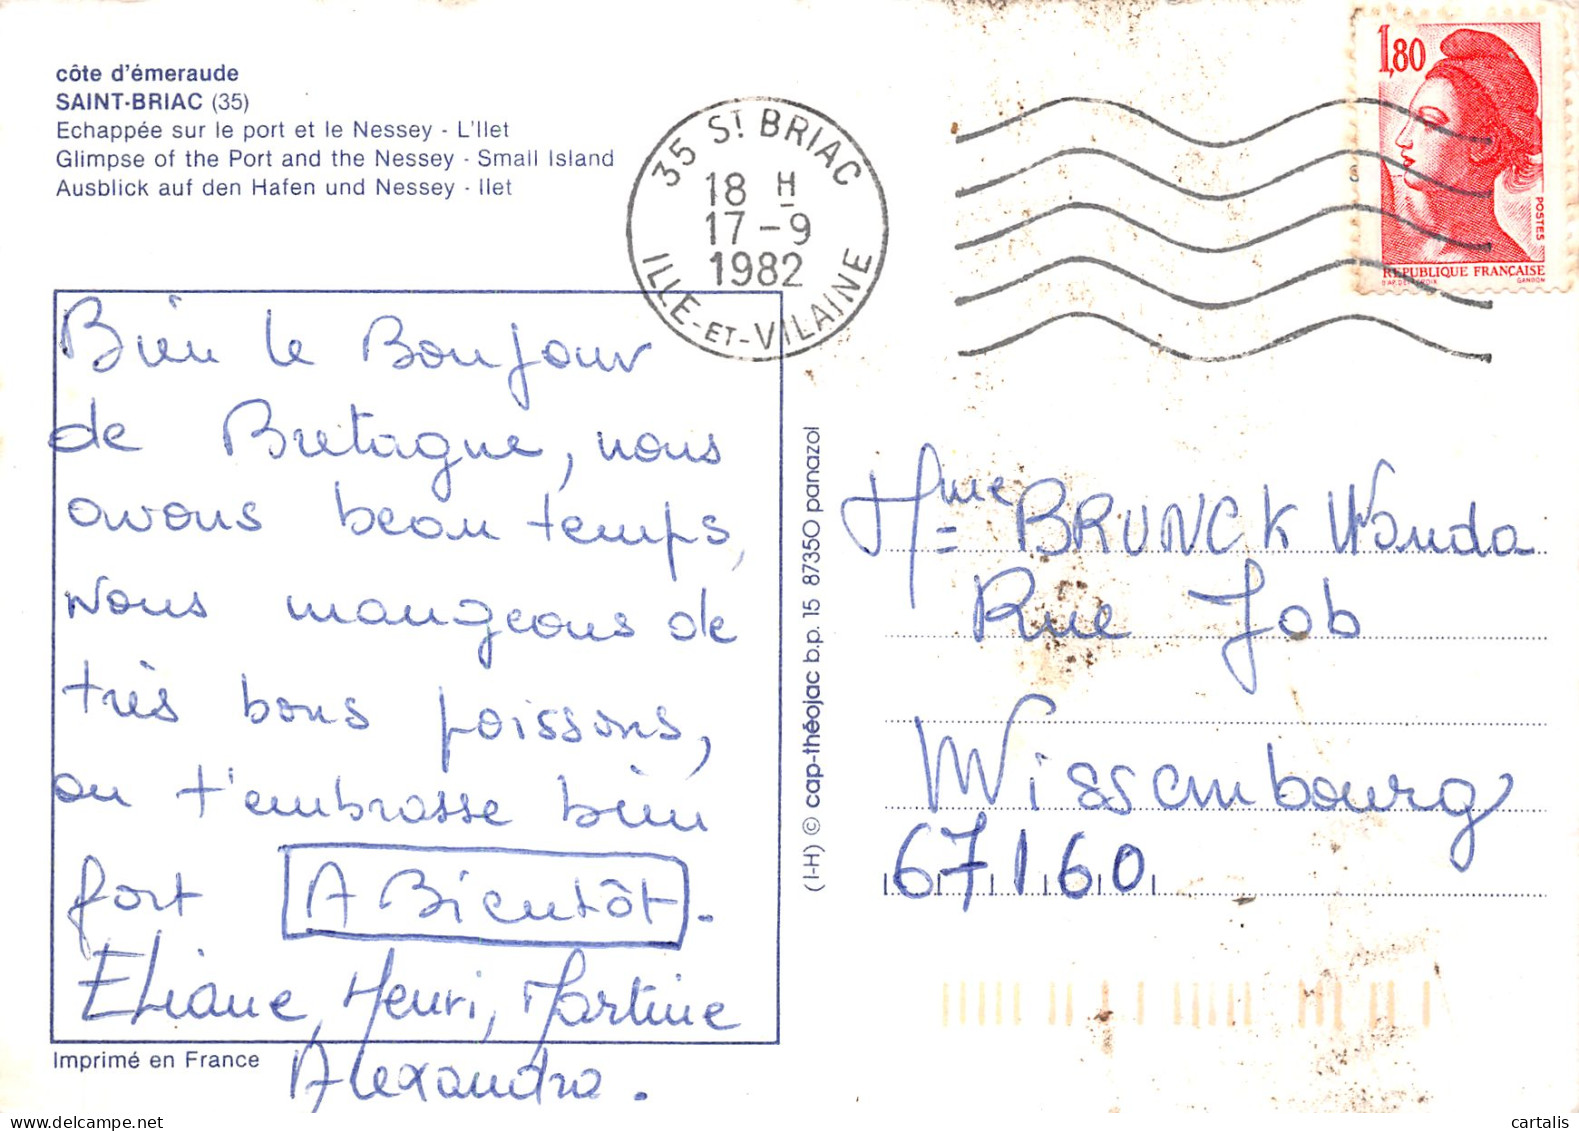 côte d'émeraude
SAINT-BRIAC (35)
Echappée sur le port et le Nessey - L'Ilet
Glimpse of the Port and the Nessey - Small Island
Ausblick auf den Hafen und Nessey - Ilet
35 St BRIAC
18 H
17-9
1982
ILLE-ET-VILAINE
1,80
POSTES
REPUBLIQUE FRANÇAISE
GANDON
Bien le Bonjour
de Bretagne, nous
avons beau temps,
Nous mangeons de
très bons poissons,
on t'embrasse bien
fort A Bientôt.
Eliane, Henri, Martine
Alexandra.
Imprimé en France
(I-H) © cap-théojac b.p. 15 87350 panazol
Mme BRUNCK Wanda
Rue Job
Wissembourg
67160
cartalis.com